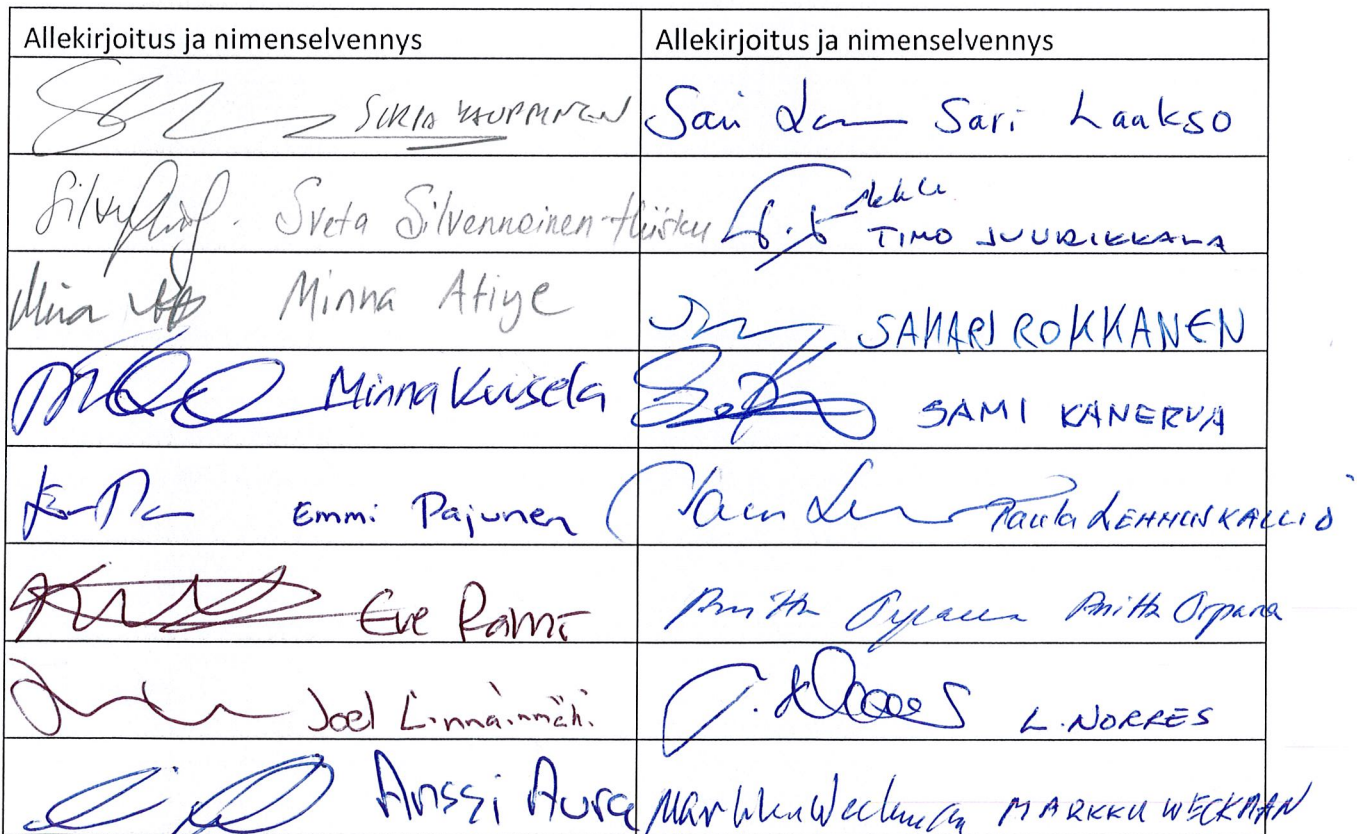 Allekirjoitus ja nimenselvennys Allekirjoitus ja nimenselvennys
SIRPA KAUPPINEN Sari Laakso
Sveta Silvennoinen-Hiisku TIMO JUURIKKALA
Minna Atiye SAKARI ROKKANEN
Minna Kuisela SAMI KANERVA
Emmi Pajunen Paula LEHMUSKALLIO
Eve Rämö Piritta Orpana
Joel Linnainmäki L. NORRES
Anssi Aura Markku Weckman MARKKU WECKMAN